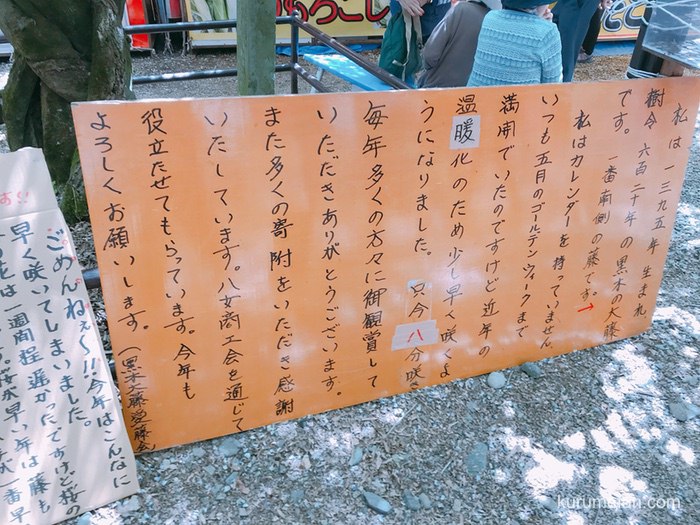 私は一三九五年生まれ
樹令六百二十年の黒木の大藤
です。一番南側の藤です。→
私はカレンダーを持っていません
いつも五月のゴールデンウィークまで
満開でいたのですけど近年の
温暖化のため少し早く咲くよ
うになりました。只今八分咲き
毎年多くの方々に御観賞して
いただきありがとうございます。
また多くの寄附をいただき感謝
いたしています。八女商工会を通じて
役立たせてもらっています。今年も
よろしくお願いします。(黒木大藤愛藤会)
ごめんねぇ〜!!今年はこんなに
早く咲いてしまいました。ですけど桜の
花は一週間程遅かった
早い年は藤も
一番早
kurumejan.com